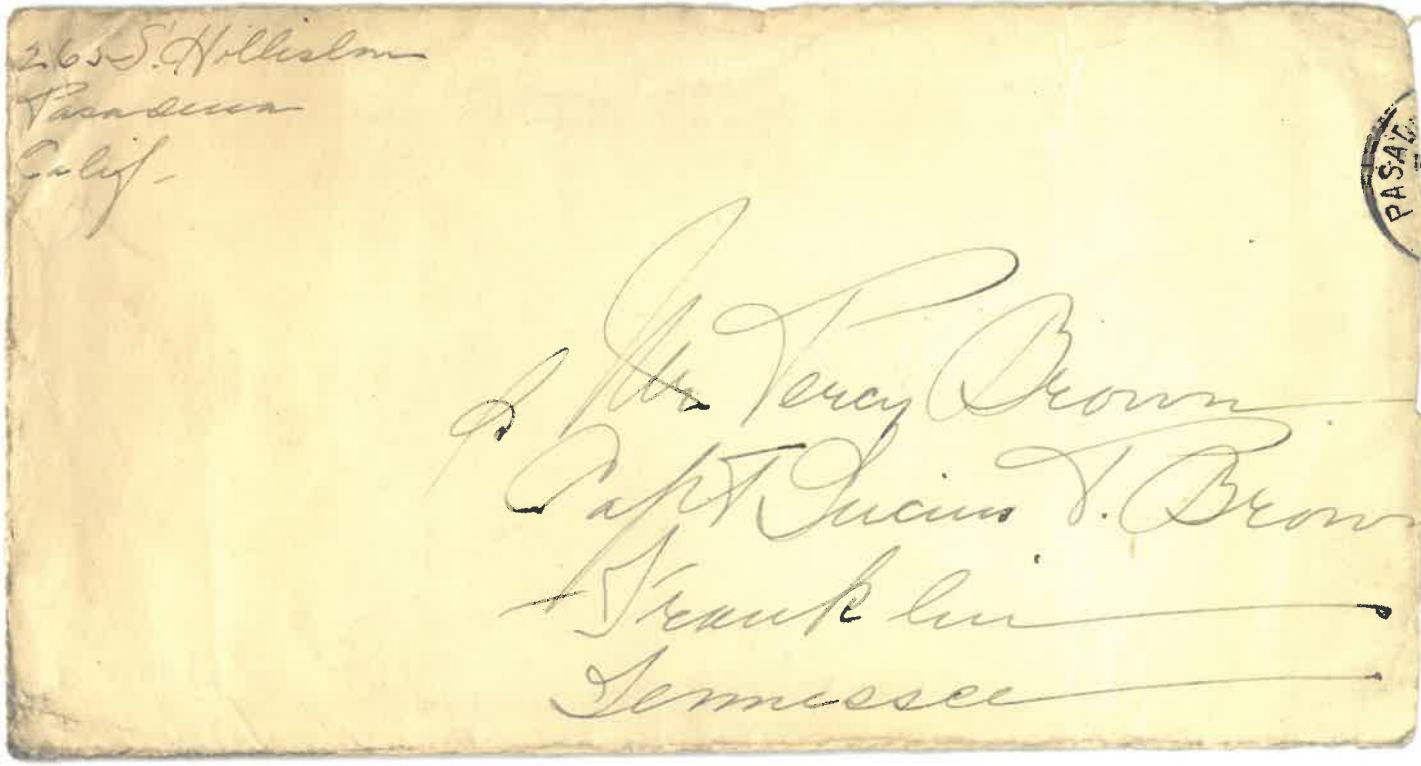 265 S. Holliston
Pasadena
Calif-
PASAD
Mr Percy Brown
Capt Lucius P. Brown
Franklin
Tennessee